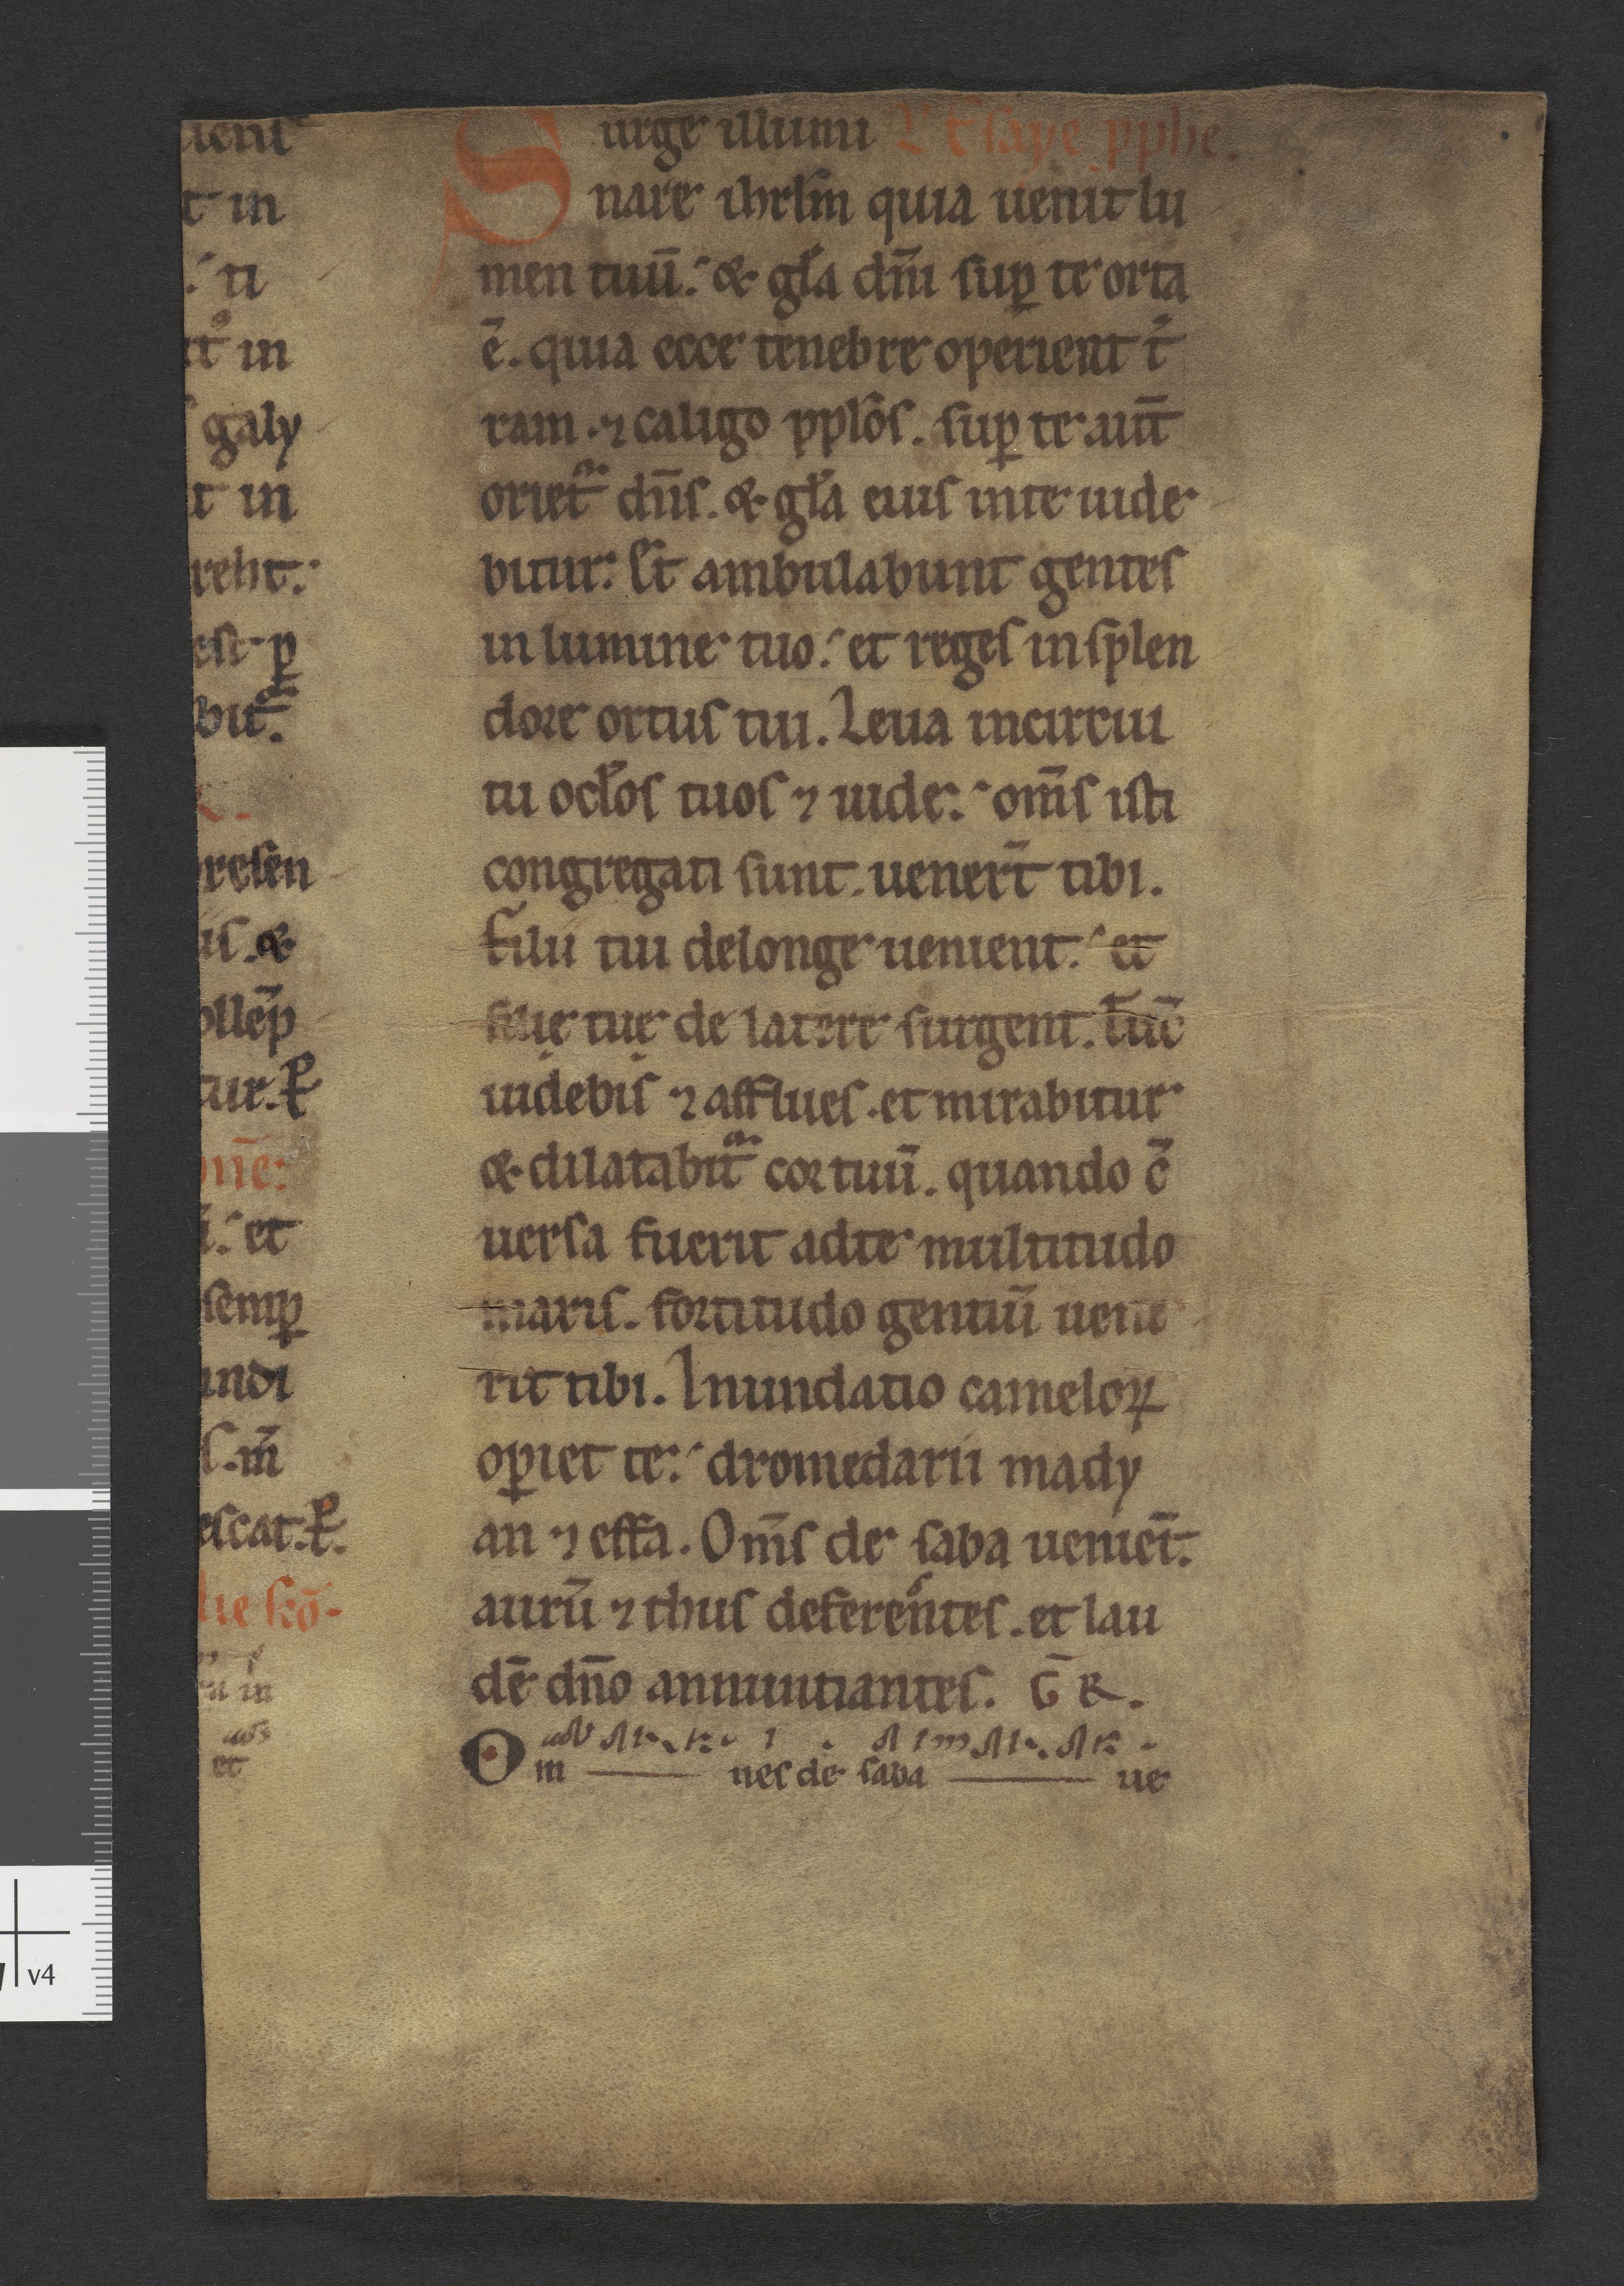 uenit
t in
: ti
it᷑ in
galy
t in
reht:
est ꝑ
bit᷑.
R.
presen
us. &
ollēp
tur. P̲
onē:
ū. et
semꝑ
undi
s. m̄
escat. P̲.
lie sc̄o.
in
et
Surge illumi L̄ Esaye pphe.
nare ihrlm̄ quia uenit lu
men tuū. & gl̄a dn̄i suꝑ te orta
ē. quia ecce tenebre operient t̄
ram. ⁊ caligo pplōs. suꝑ te aūt
oriet᷑ dn̄s. & gl̄a eius inte uide
bitur. Et ambulabunt gentes
in lumine tuo. et reges in splen
dore ortus tui. Leua incircui
tu oclōs tuos ⁊ uide: om̄s isti
congregati sunt. uener̄t tibi.
Filii tui delonge uenient. et
filie tue de latere surgent. Tūc
uidebis ⁊ afflues. et mirabitur
& dilatabit᷑ cor tuū. quando c̄
uersa fuerit adte multitudo
maris. fortitudo gentiū uene
rit tibi. Inundatio cameloꝝ
oꝑiet te. dromedarii mady
an ⁊ effa. Om̄s de saba ueniēt.
aurū ⁊ thus deferentes. et lau
dē dn̄o annuntiantes. Ḡ R.
Om nes de saba ue